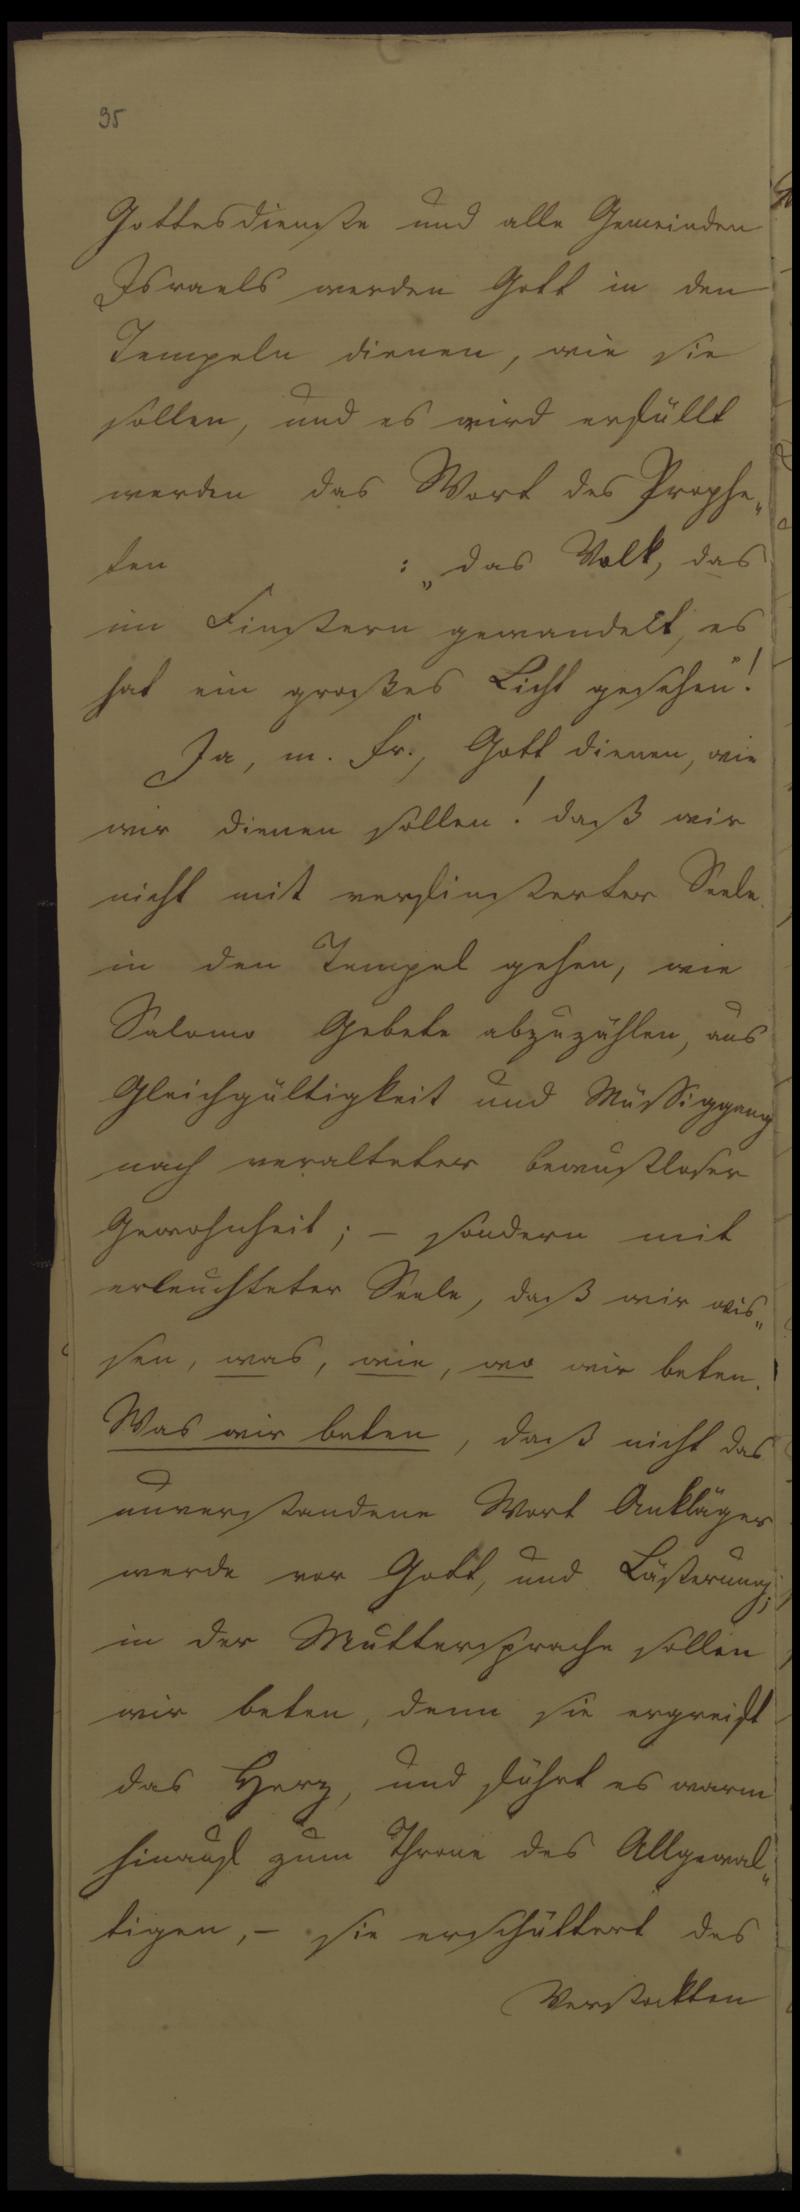 35
Gottesdienste und alle Gemeinden
Israels werden Gott in den
Tempeln dienen, wie sie
sollen, und es wird erfüllt
werden das Wort des Prophe„
ten : „das Volk, das
im Finstern gewandelt, es
hat ein großes Licht gesehen"!
Ja, m. Fr., Gott dienen, wie
wir dienen sollen! daß wir
nicht mit verfinsterter Seele
in den Tempel gehen, wie
Salomo Gebete abzuzählen, aus
Gleichgültigkeit und Müssiggang
nach veralteter bewustloser
Gewohnheit; – sondern mit
erleuchteter Seele, daß wir wis„
sen, was, wie, wo wir beten.
Was wir beten, daß nicht das
unverstandene Wort Ankläger
werde vor Gott, und Lästerung;
in der Muttersprache sollen
wir beten, denn sie ergreift
das Herz, und führt es warm
hinauf zum Throne des Allgewal„
tigen, – sie erschüttert des
Verstockten